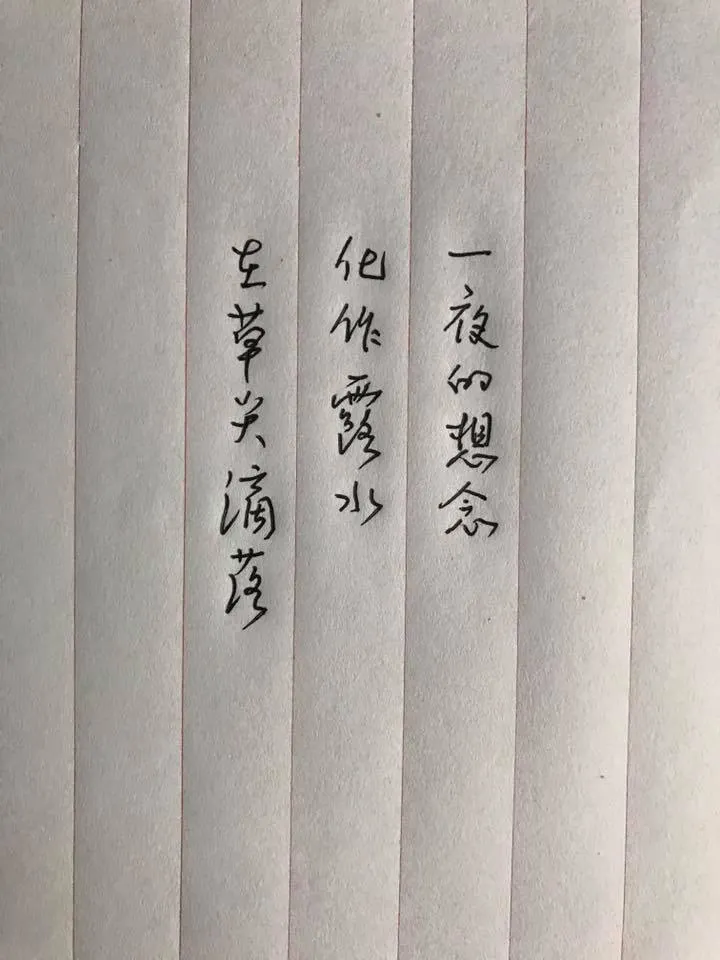 一夜的想念
化作露水
在草尖滴落